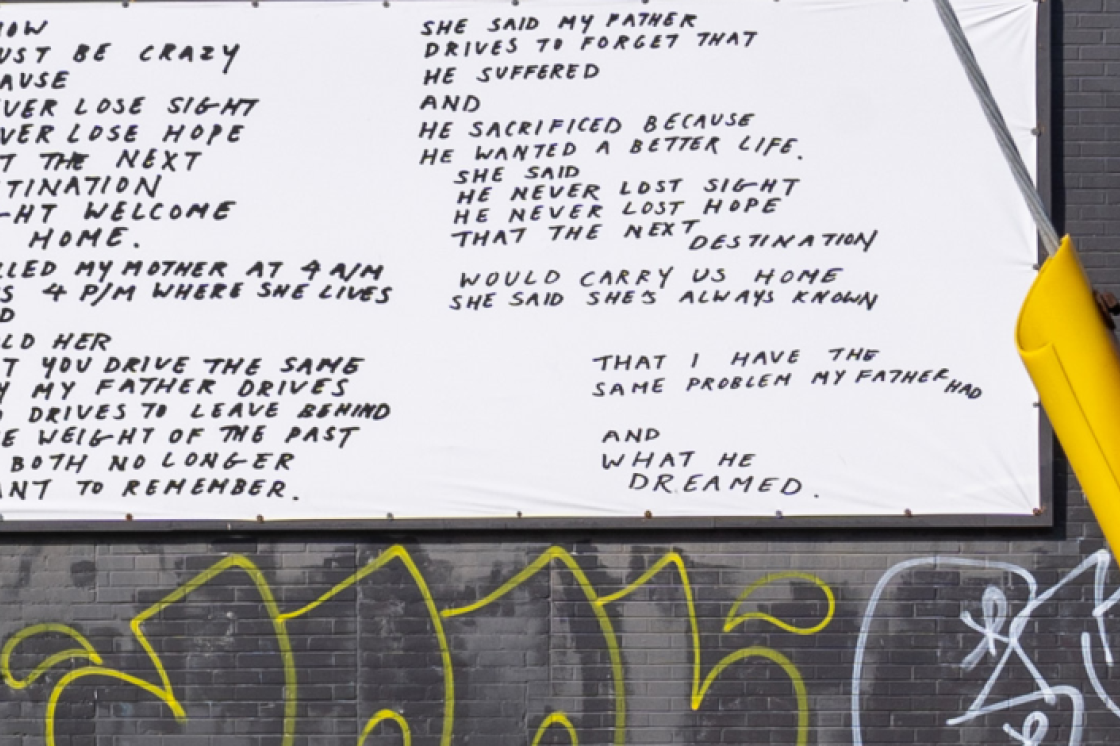 NOW
UST BE CRAZY
AUSE
VER LOSE SIGHT
VER LOSE HOPE
T THE NEXT
TINATION
GHT WELCOME
HOME.
LLED MY MOTHER AT 4 A/M
S 4 P/M WHERE SHE LIVES
D
LD HER
T YOU DRIVE THE SAME
Y MY FATHER DRIVES
O DRIVES TO LEAVE BEHIND
E WEIGHT OF THE PAST
BOTH NO LONGER
ANT TO REMEMBER.
SHE SAID MY FATHER
DRIVES TO FORGET THAT
HE SUFFERED
AND
HE SACRIFICED BECAUSE
HE WANTED A BETTER LIFE.
SHE SAID
HE NEVER LOST SIGHT
HE NEVER LOST HOPE
THAT THE NEXT DESTINATION
WOULD CARRY US HOME
SHE SAID SHE'S ALWAYS KNOWN
THAT I HAVE THE
SAME PROBLEM MY FATHER HAD
AND
WHAT HE
DREAMED.